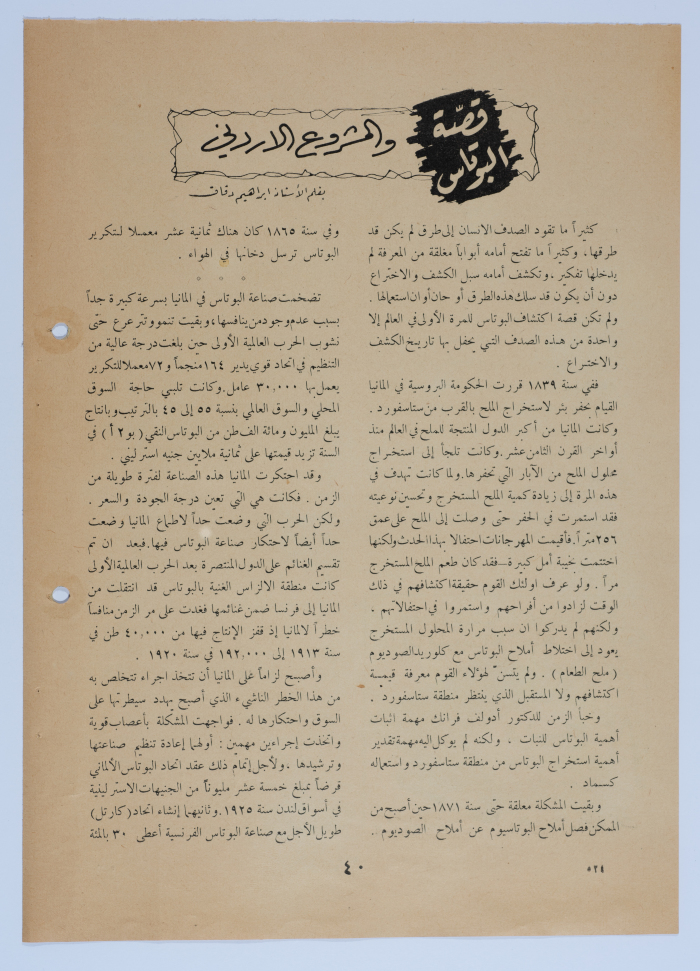 قصّة
البوتاس
والمشروع الاردني
بقلم الأستاذ ابراهيم دقاق
كثيراً ما تقود الصدف الانسان إلى طرق لم يكن قد
طرقها، وكثيراً ما تفتح أمامه أبواباً مغلقة من المعرفة لم
يدخلها تفكير، وتكشف أمامه سبل الكشف والاختراع
دون أن يكون قد سلك هذه الطرق أو حان أوان استعمالها .
ولم تكن قصة اكتشاف البوتاس للمرة الأولى في العالم إلا
واحدة من هذه الصدف التي يحفل بها تاريخ الكشف
والاختراع .
ففي سنة ١٨٣٩ قررت الحكومة البروسية في المانيا
القيام بحفر بئر لاستخراج الملح بالقرب من ستاسفورد .
وكانت المانيا من أكبر الدول المنتجة للملح في العالم منذ
أواخر القرن الثامن عشر. وكانت تلجأ إلى استخراج
محلول الملح من الآبار التي تحفرها. ولما كانت تهدف في
هذه المرة إلى زيادة كمية الملح المستخرج وتحسين نوعيته
فقد استمرت في الحفر حتى وصلت إلى الملح على عمق
٢٥٦ متراً. فأقيمت المهرجانات احتفالا بهذا الحدث ولكنها
اختتمت بخيبة أمل كبيرة – فقد كان طعم الملح المستخرج
مراً . ولو عرف اولئك القوم حقيقة اكتشافهم في ذلك
الوقت لزادوا من أفراحهم واستمروا في احتفالاتهم ،
ولكنهم لم يدركوا ان سبب مرارة المحلول المستخرج
يعود إلى اختلاط أملاح البوتاس مع كلوريد الصوديوم
( ملح الطعام ) . ولم يتسنّ لهؤلاء القوم معرفة قيمة
اكتشافهم ولا المستقبل الذي ينتظر منطقة ستاسفورد .
وخبأ الزمن للدكتور أدولف فرانك مهمة اثبات
أهمية البوتاس للنبات ، ولكنه لم يوكل اليه مهمة تقدير
أهمية استخراج البوتاس من منطقة ستاسفورد واستعماله
كسماد .
وبقيت المشكلة معلقة حتى سنة ١٨٧١ حين أصبح من
الممكن فصل أملاح البوتاسيوم عن أملاح الصوديوم .
وفي سنة ١٨٦٥ كان هناك ثمانية عشر معملا لتكرير
البوتاس ترسل دخانها في الهواء .
تضخمت صناعة البوتاس في المانيا بسرعة كبيرة جداً
بسبب عدم وجود من ينافسها، وبقيت تنمو وتترعرع حتى
نشوب الحرب العالمية الأولى حين بلغت درجة عالية من
التنظيم في اتحاد قوي يدير ١٦٤ منجماً و٧٢ معملا للتكرير
يعمل بها ٣٠,٠٠٠ عامل. وكانت تلبي حاجة السوق
المحلي والسوق العالمي بنسبة ٥٥ إلى ٤٥ بالترتيب وبانتاج
يبلغ المليون ومائة الف طن من البوتاس النقي ( بو٢ أ ) في
السنة تزيد قيمتها على ثمانية ملايين جنيه استرليني .
وقد احتكرت المانيا هذه الصناعة لفترة طويلة من
الزمن . فكانت هي التي تعين درجة الجودة والسعر .
ولكن الحرب التي وضعت حداً لاطماع المانيا وضعت
حداً أيضاً لاحتكار صناعة البوتاس فيها. فبعد ان تم
تقسيم الغنائم على الدول المنتصرة بعد الحرب العالمية الأولى
كانت منطقة الالزاس الغنية بالبوتاس قد انتقلت من
المانيا إلى فرنسا ضمن غنائمها فغدت على مر الزمن منافساً
خطراً لالمانيا إذ قفز الإنتاج فيها من ٤٠,٠٠٠ طن في
سنة ١٩١٣ إلى ١٩٢,٠٠٠ في سنة ١٩٢٠ .
وأصبح لزاماً على المانيا أن تتخذ اجراء تتخلص به
من هذا الخطر الناشيء الذي أصبح يهدد سيطرتها على
السوق واحتكارها له . فواجهت المشكلة بأعصاب قوية
واتخذت إجراءين مهمين : أولهما إعادة تنظيم صناعتها
وترشيدها ، ولأجل إتمام ذلك عقد اتحاد البوتاس الألماني
قرضاً بمبلغ خمسة عشر مليوناً من الجنيهات الاسترلينية
في أسواق لندن سنة ١٩٢٥. وثانيهما إنشاء اتحاد ( كارتل )
طويل الأجل مع صناعة البوتاس الفرنسية أعطى ٣٠ بالمئة
٤٠
٥٢٤